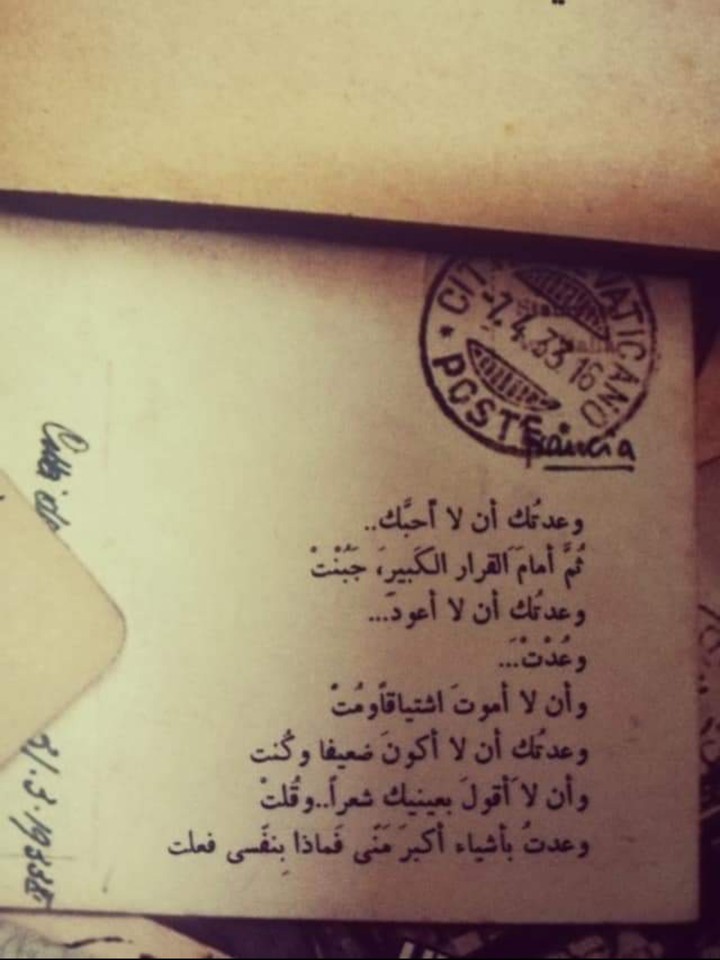 VATICANO
4.33.16
POSTE
Francia
وعدتُك أن لا أحبَّك..
ثُمَّ أمامَ القرار الكَبيرِ، جَبُنْتْ
وعدتُك أن لا أعود...
وعُدْتْ...
وأن لا أموتَ اشتياقاً ومُتْ
وعدتُك أن لا أكونَ ضعيفا وكُنت
وأن لا أقولَ بعينيك شعراً..وقُلتْ
وعدتُ بأشياء أكبرَ مَنّى فَماذا بِنفَسى فعلت